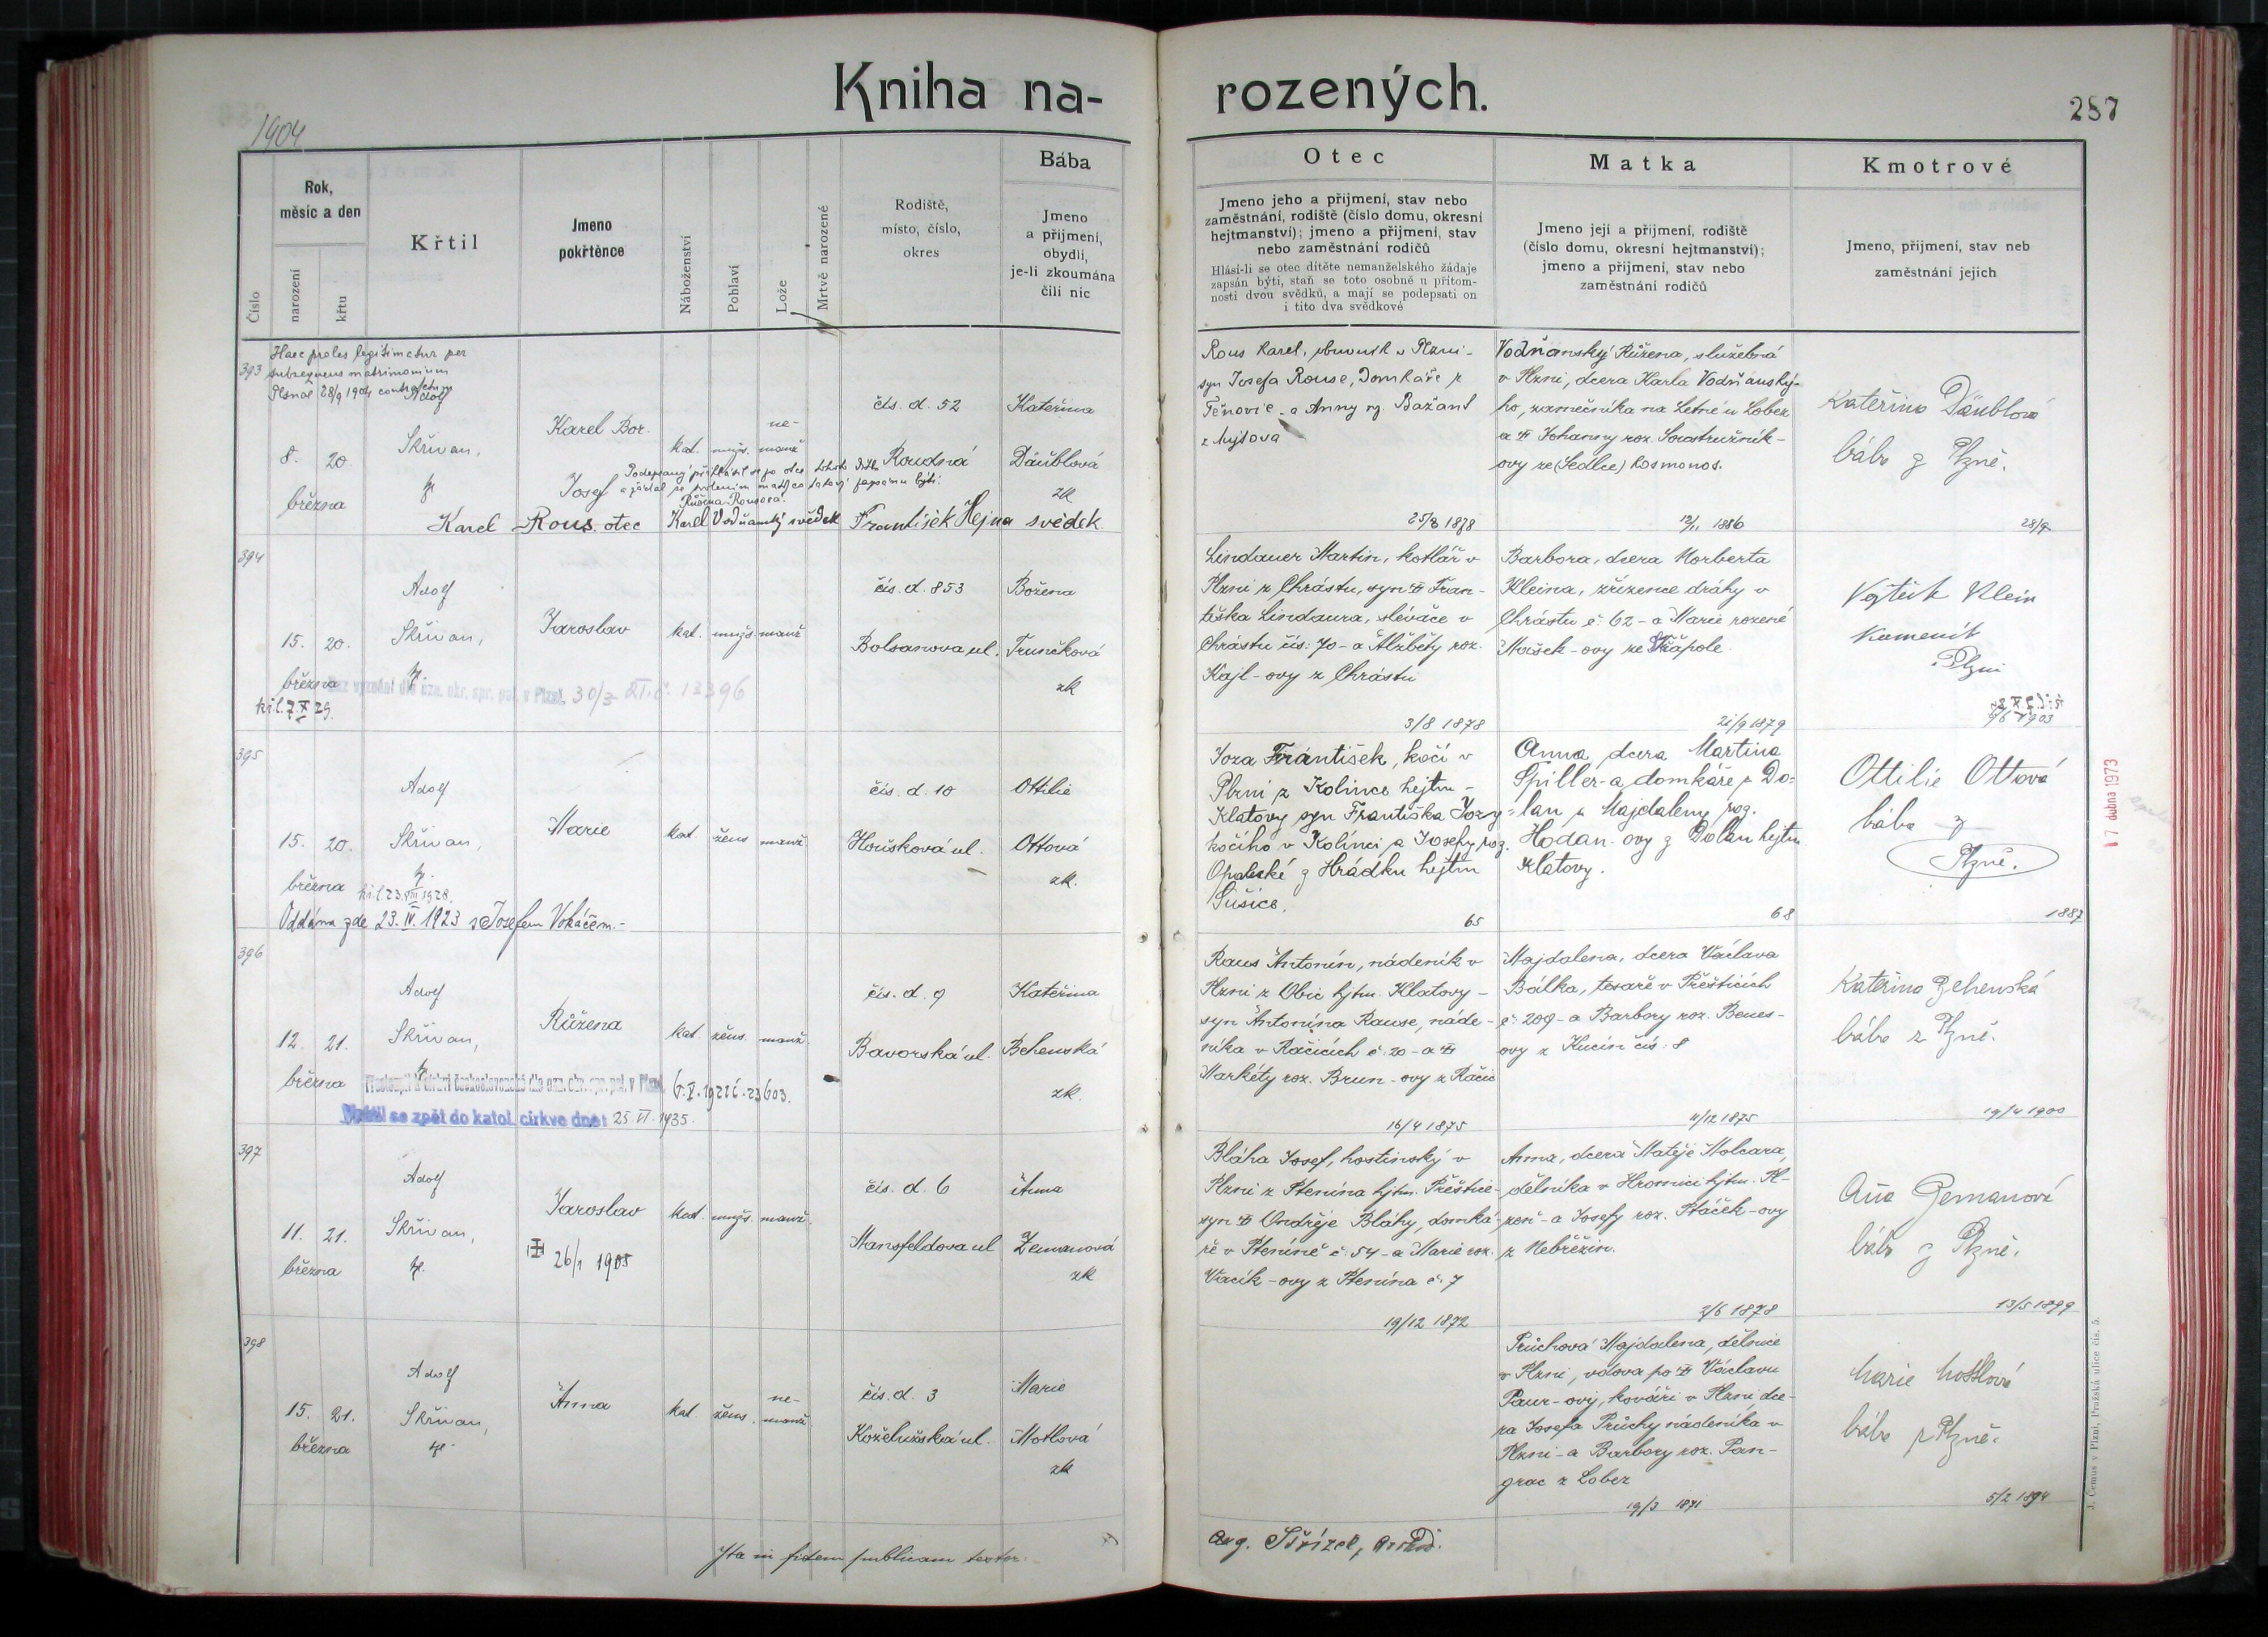 Kniha na-
rozených.
287
1904
Číslo
Rok,
měsíc a den
narození
křtu
Křtil
Jmeno
pokřtěnce
Náboženství
Pohlaví
Lože
Mrtvě narozené
Rodiště,
místo, číslo,
okres
Bába
Jmeno
a přijmení,
obydlí,
je-li zkoumána
čili nic
Otec
Jmeno jeho a přijmení, stav nebo
zaměstnání, rodiště (číslo domu, okresní
hejtmanství); jmeno a přijmení, stav
nebo zaměstnání rodičů
Hlásí-li se otec dítěte nemanželského žádaje
zapsán býti, staň se toto osobně u přítom-
nosti dvou svědků, a mají se podepsati on
i tito dva svědkové
Matka
Jmeno její a přijmení, rodiště
(číslo domu, okresní hejtmanství);
jmeno a přijmení, stav nebo
zaměstnání rodičů
Kmotrové
Jmeno, přijmení, stav neb
zaměstnání jejich
393
Haec proles legitimatur per
subsequens matrimonium
Plsnae 28/9 1904 contractum
8. března
20.
Adolf
Skřivan,
Karel Bor.
Josef
kat.
mužs.
ne-
manž
čís. d. 52
Roudná
Kateřina
Däublová
zk
Růžena Rousová.
Karel Rous otec Karel Vodňanský svědek František Hejna svědek
Rous Karel, obuvník v Plzni-
syn Josefa Rouse, domkáře z
Těnovic - a Anny roz. Bažant
z Mýtova
25/8 1878
Vodňanský Růžena, služebná
v Plzni, dcera Karla Vodňanský-
ho, zámečníka na Letné u Lobez
a Johanny roz. Soustružník-
ovy ze (Sedlce) Kosmonos.
12/11 1886
Kateřina Däublová
bába z Plzně.
28/9
394
15. března
20.
Adolf
Skřivan,
Jaroslav
kat.
mužs.
manž
čís. d. 853
Bolzanova ul.
Božena
Trunčková
zk
30/3 21. č. 13396
Lindauer Martin, kotlář v
Plzni z Chrástu, syn Fran-
tiška Lindaura, slévače v
Chrástu čís: 70 - a Alžběty roz.
Kajl-ovy z Chrástu
3/8 1878
Barbora, dcera Norberta
Kleina, zřízence dráhy v
Chrástu č: 62 - a Marie rozené
Mašek-ovy ze Střápole
21/9 1879
Vojtěch Klein
kameník
Plzni
395
15. března
20.
Adolf
Skřivan,
Marie
kat.
žens
manž.
čís. d. 10
Houšková ul.
Ottilie
Ottová
zk.
Oddána zde 23. IV. 1923 s Josefem Voháčem.-
Joza František, kočí v
Plzni z Kolince hejtm-
Klatovy syn Františka Jozy
kočího v Kolinci a Josefy roz.
z Hrádku hejtm
Sušice.
65
Anna dcera Martina
Spiller-a domkáře z Do-
lan a Majdaleny roz.
Hodan-ovy z Dolan hejtm
Klatovy.
68
Ottilie Ottová
bába z
Plzně.
1887
17 dubna 1973
396
12. března
21.
Adolf
Skřivan,
Růžena
kat.
žens.
manž.
čís. d. 9
Bavorská ul.
Kateřina
Behenská
zk.
se zpět do katol. církve dne: 25. VI. 1935.
Raus Antonín, nádeník v
Plzni z Obic hjtm. Klatovy -
syn Antonína Rause, náde-
níka v Račicích č. 20 - a
Markéty roz. Brun-ovy z Račic
16/4 1875
Majdalena, dcera Václava
Bálka, tesaře v Přešticích
č: 209 - a Barbory roz. Benes-
ovy z Kucín čís: 8
11/12 1875
bába z Plzně.
19/4 1900
397
11. března
21.
Adolf
Skřivan,
Jaroslav
26/1 1905
kat.
mužs.
manž.
čís. d. 6
Mansfeldova ul
Anna
Zemanová
zk
Bláha Josef, hostinský v
Plzni z Ptenína hjtm. Přeštice-
syn Ondřeje Bláhy, domká-
ře v Pteníně č: 54 - a Marie roz.
Vacík-ovy z Ptenína č: 7
19/12 1872
Anna, dcera Matěje Molcara,
dělníka v Hromnici hjtm. Pl-
zeň - a Josefy roz. Ptáček-ovy
z Nebřezin.
2/6 1878
Aňa Zemanová
bába z Plzně.
13/5 1899
398
15. března
21.
Adolf
Skřivan,
Anna
kat.
žens.
ne-
manž.
čís. d. 3
Koželužská ul.
Marie
Motlová
zk
Průchová Majdalena, dělnice
v Plzni, vdova po Václavu
Paur-ovi, kováři v Plzni, dce-
ra Josefa Průchy nádeníka v
Plzni - a Barbory roz. Pan-
grac z Lobez
19/3 1871
Marie Mottlová
bába z Plzně.
5/2 1894
Ita in fidem publicam testor:
Aug. Střízek,
J. Čemus v Plzni, Pražská ulice čís. 5.